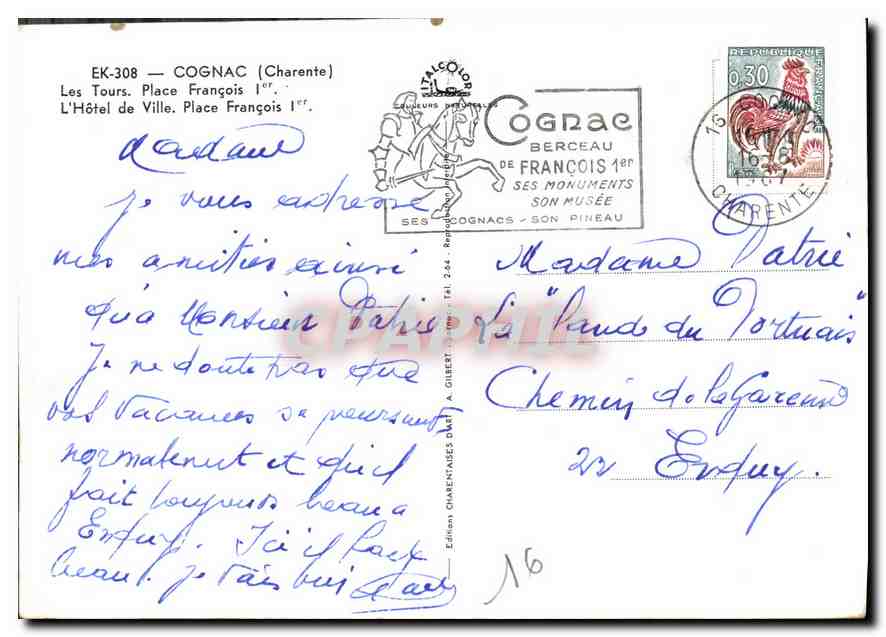 EK-308 — COGNAC (Charente)
Les Tours. Place François Ier.
L'Hôtel de Ville. Place François Ier.
ITALCOLOR
COULEURS NATURELLES
Cognac
BERCEAU
DE FRANÇOIS 1er
SES MONUMENTS
SON MUSÉE
SES COGNACS - SON PINEAU
REPUBLIQUE FRANÇAISE
0,30
16
1967
CHARENTE
Madame
je vous adresse
mes amitiés ainsi
qu'à Monsieur Patrie
Je ne doute pas que
vos vacances se poursuivent
normalement et qu'il
fait toujours beau à
Erquy. Ici il fait
beau. je
Madame Patrie
La "Lande du Tortuais"
Chemin de la Garenne
22 Erquy.
Editions CHARENTAISES D'ART A. GILBERT, Cognac. Tél. 2-64 - Reproduction interdite
CPAPHIL
16